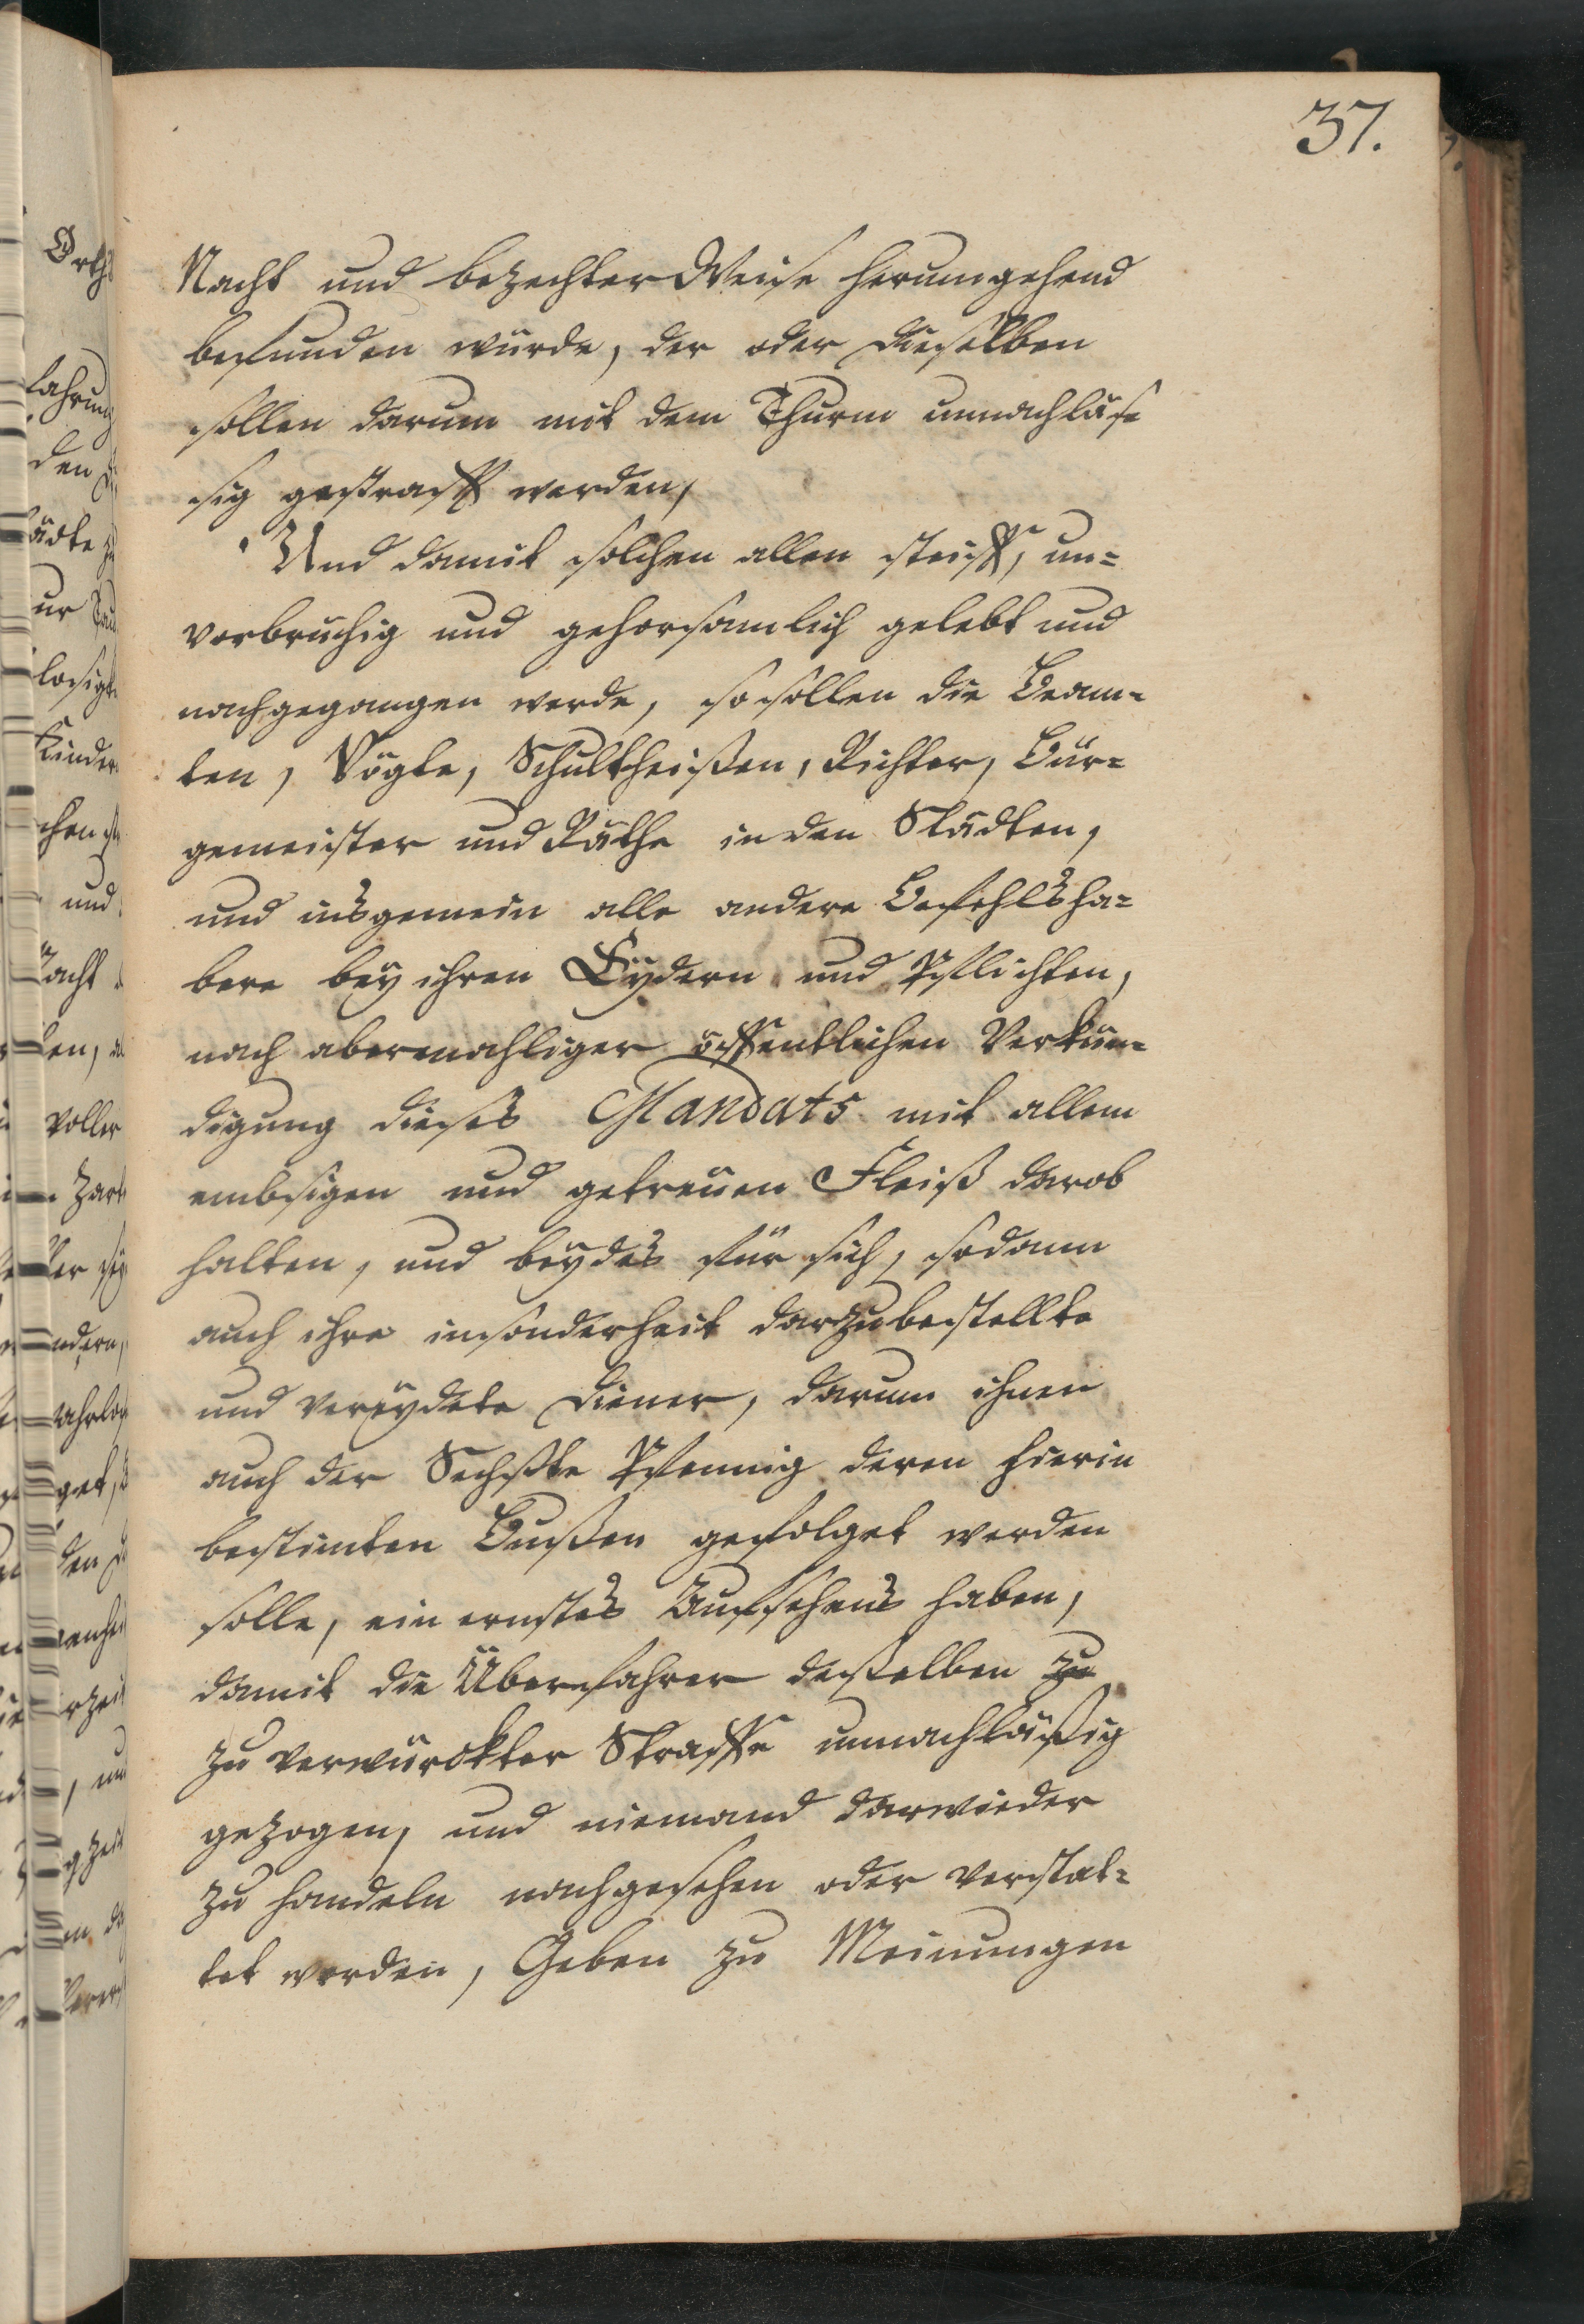 37.
Nacht und bezechter Weise herumgehend
befunden würde, der oder dieselben
sollen darum mit dem Thurm unnachläs=
sig gestrafft werden,
Und damit solchen allen steiff, un=
verbruchig und gehorsamlich gelebt und
nachgegangen werde, so sollen die Beam=
ten, Vögte, Schultheißen, Richter, Bur=
gemeister und Räthe in den Städten,
und insgemein alle andere Befehlsha=
bere bey ihren Eydern und Pflichten,
nach abermahliger öffentlichen Verkün=
digung dieses Mandats mit allem
embsigen und getreuen Fleiß darob
halten, und beydes für sich, sodann
auch ihre insonderheit darzubestellte
und vereydete Diener, darum ihnen
auch der Sechste Pfennig deren hierin
bestimten Bußen gefolget werden
solle, ein ernstes Aufsehens haben,
damit die Überfahrer deßelben zu
zu verwürckter Straffe unnachläßig
gezogen, und niemand darwieder
zu handeln nachgesehen oder verstat=
tet werden, Geben zu Meinungen